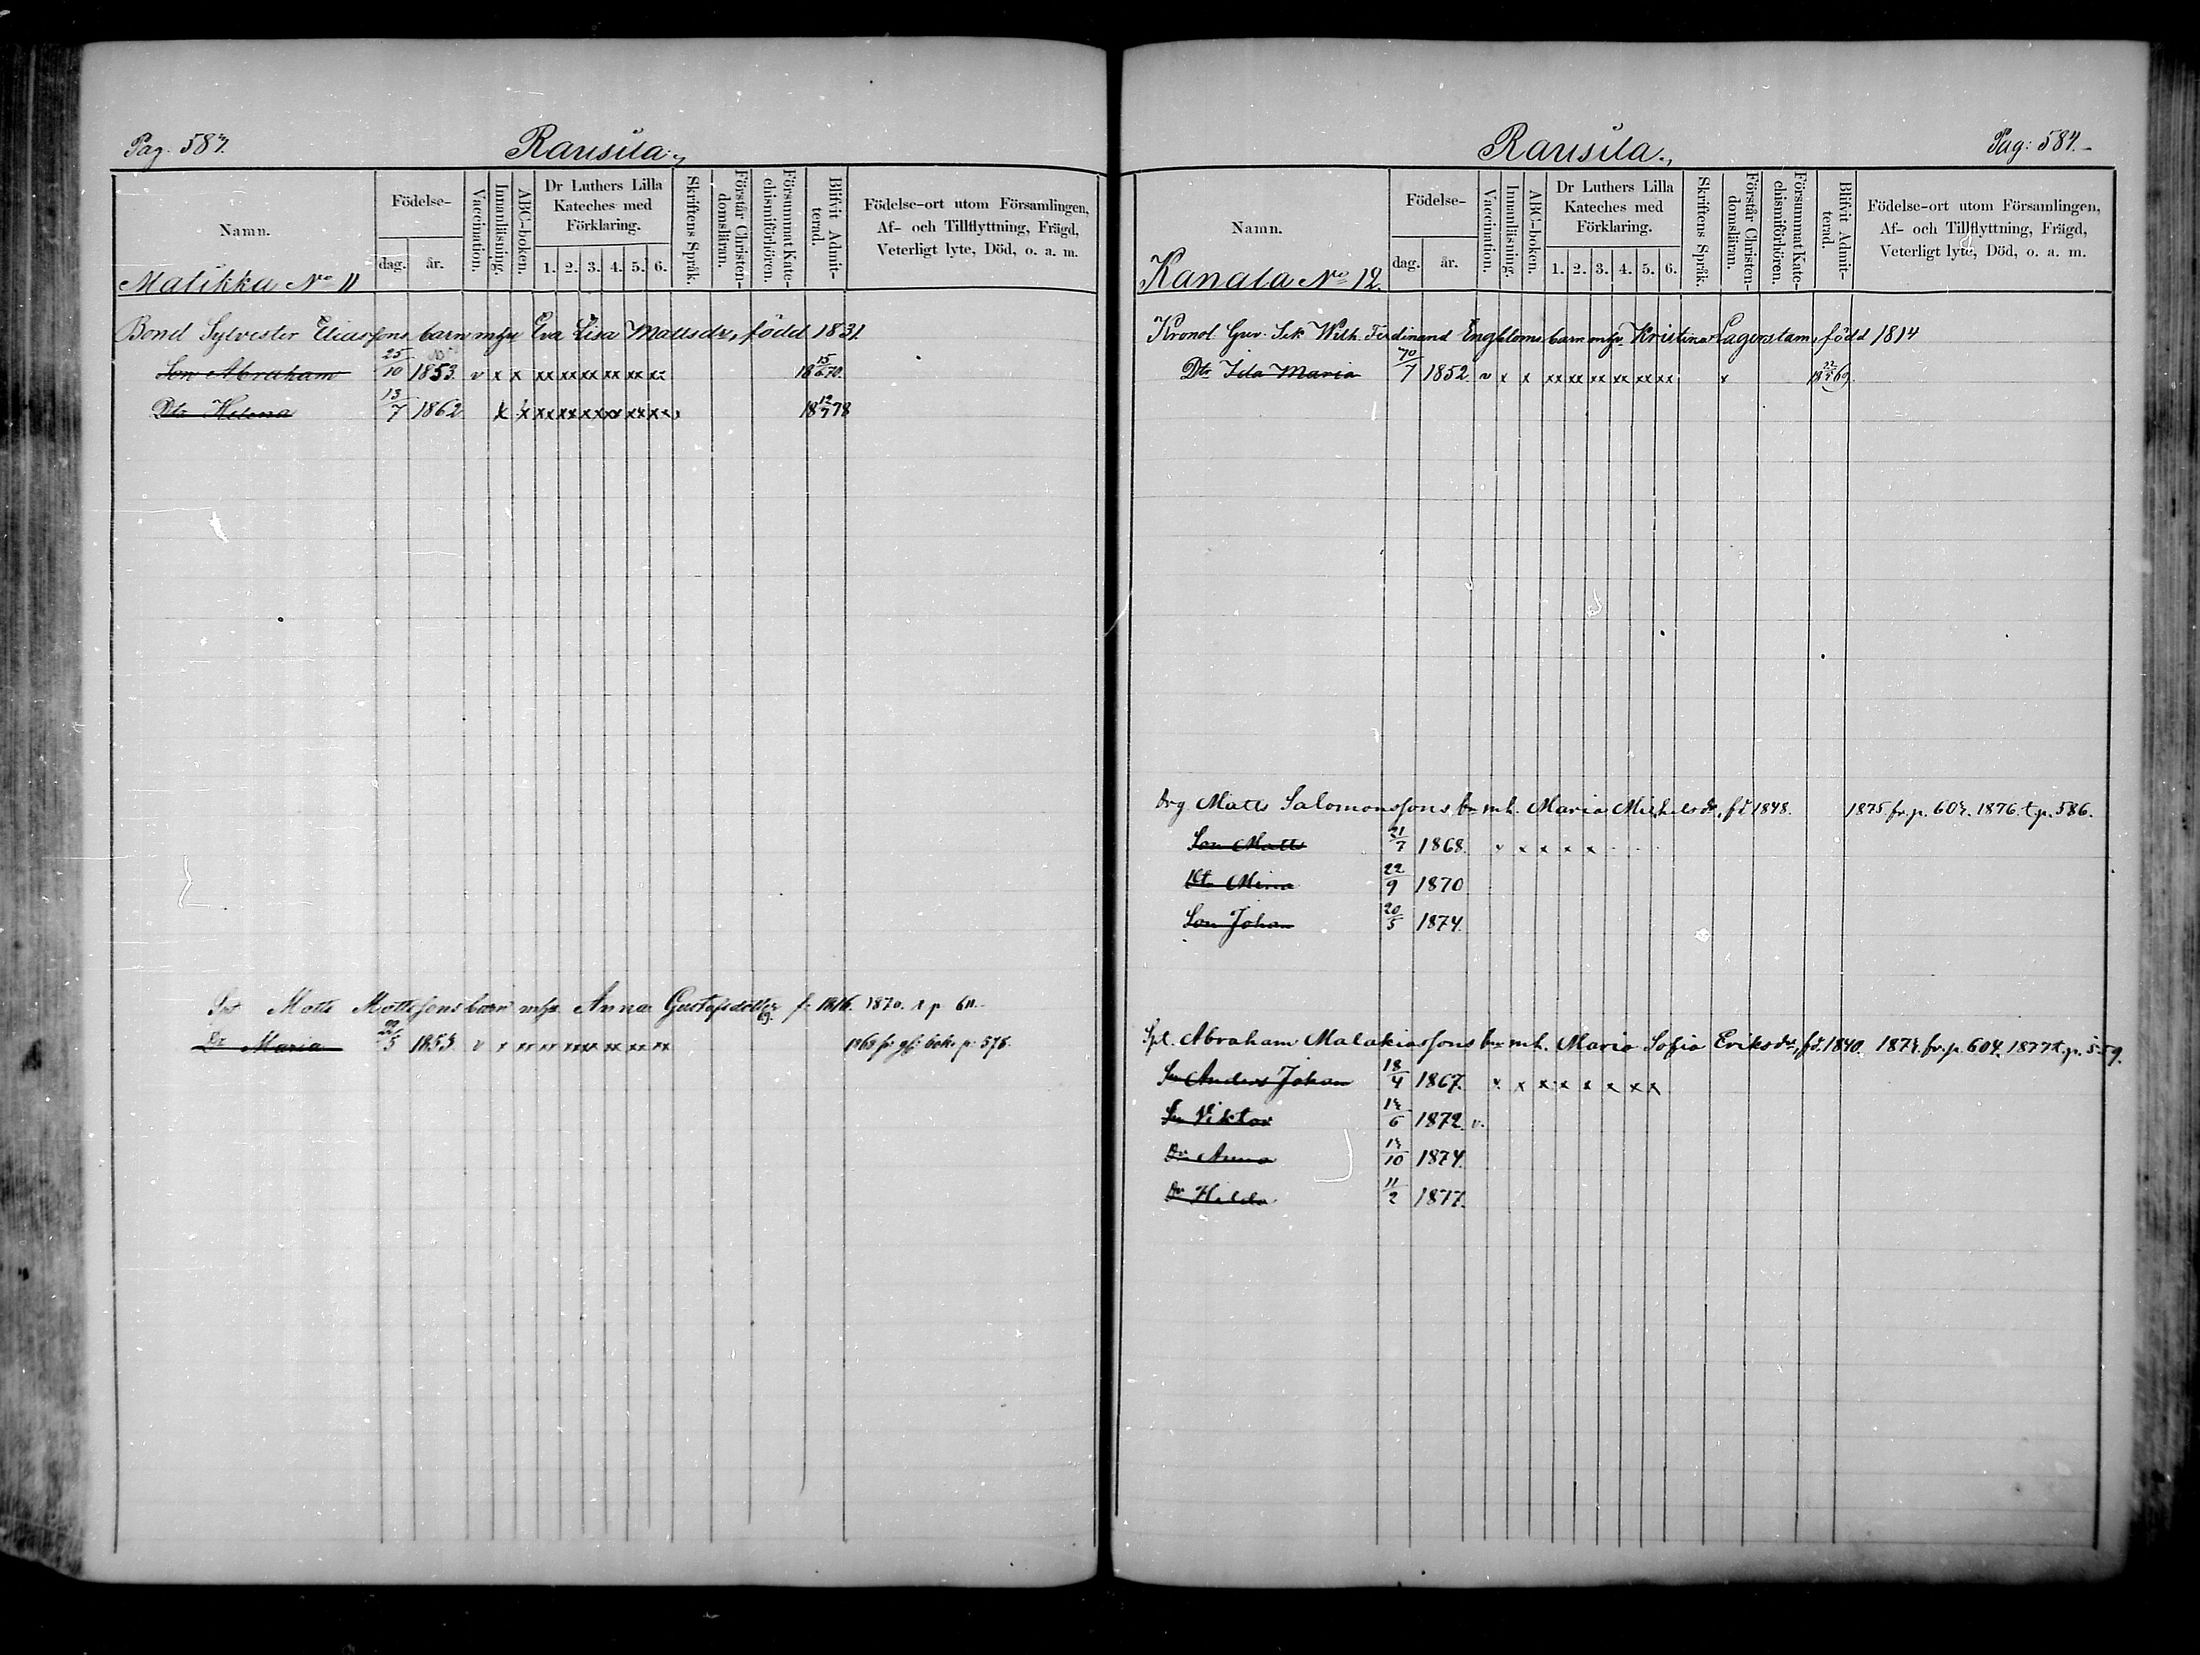 Pag. 583.
Ransila.
Namn.
Födelse-
dag.
år.
Vaccination.
Innanläsning.
ABC-boken.
Dr Luthers Lilla
Kateches med
Förklaring.
1. 2. 3. 4. 5. 6.
Skriftens Språk.
Förstår Christen-
domsläran.
Försummat Kate-
chismiförhören.
Blifvit Admit-
terad.
Födelse-ort utom Församlingen,
Af- och Tillflyttning, Frägd,
Veterligt lyte, Död, o. a. m.
Matikka No 11
Bond Sylvester Eliassons barn mhu Eva Lisa Mattsdr, född 1831.
Son Abraham 25/10 1853. v x x xx xx xx xx xx xx 18 15/6 70.
Dtr Helena 13/7 1862 x x xx xx xx xx xx xx 18 12/7 78
Matts Mattssons barn mhu Anna Gustafsdotter f. 1816. 1870. p 611.
Dr Maria 22/5 1853. v x xx xx xx xx xx xx 1868 fr bok p. 576.
Pag: 584.
Ransila.
Namn.
Födelse-
dag.
år.
Vaccination.
Innanläsning.
ABC-boken.
Dr Luthers Lilla
Kateches med
Förklaring.
1. 2. 3. 4. 5. 6.
Skriftens Språk.
Förstår Christen-
domsläran.
Försummat Kate-
chismiförhören.
Blifvit Admit-
terad.
Födelse-ort utom Församlingen,
Af- och Tillflyttning, Frägd,
Veterligt lyte, Död, o. a. m.
Kanala No 12.
Kronol Guv. Sek Wilh. Ferdinand Engbloms barn mhu Kristina Lagerstam, född 1814
Dtr Ida Maria /7 1852 v x x xx xx xx xx xx xx x 18 22/5 69.
Drg Matts Salomonssons br mh. Maria Michelsdr, fd 1848. 1875 fr. p. 603. 1876. t p. 586.
Son Matts 21/7 1868. x x x x x
Dtr Mina 22/9 1870
Son Johan 20/5 1874.
Spt. Abraham Malakiassons br mh. Maria Sofia Eriksdr, fd. 1840. 1873. fr. p. 604. 1877 t. p. 559.
Sn Anders Johan 18/4 1867. x x x x x x x x
Sn Viktor 13/6 1872. v.
Dr Anna 13/10 1874.
Dr Hilda 11/2 1877.